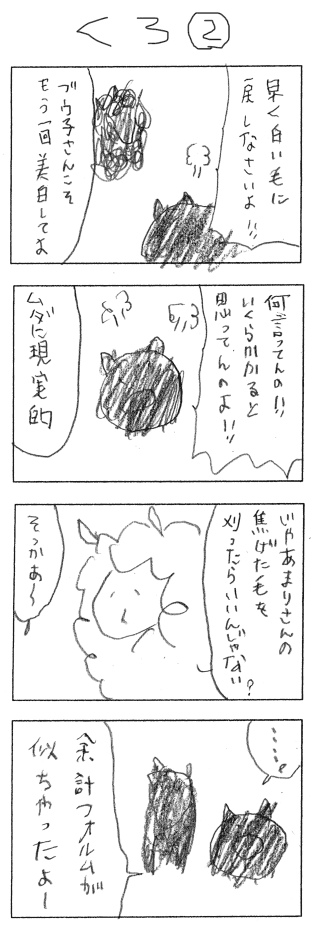 くろ②
早く白い毛に
戻しなさいよ!!
ブウ子さんこそ
もう一回美白してよ
何言ってんの!!
いくらかかると
思ってんのよ!!
ムダに現実的
じゃあまりさんの
焦げた毛を
刈ったらいいんじゃない?
そっかあ〜
……。
余計フォルムが
似ちゃったよー